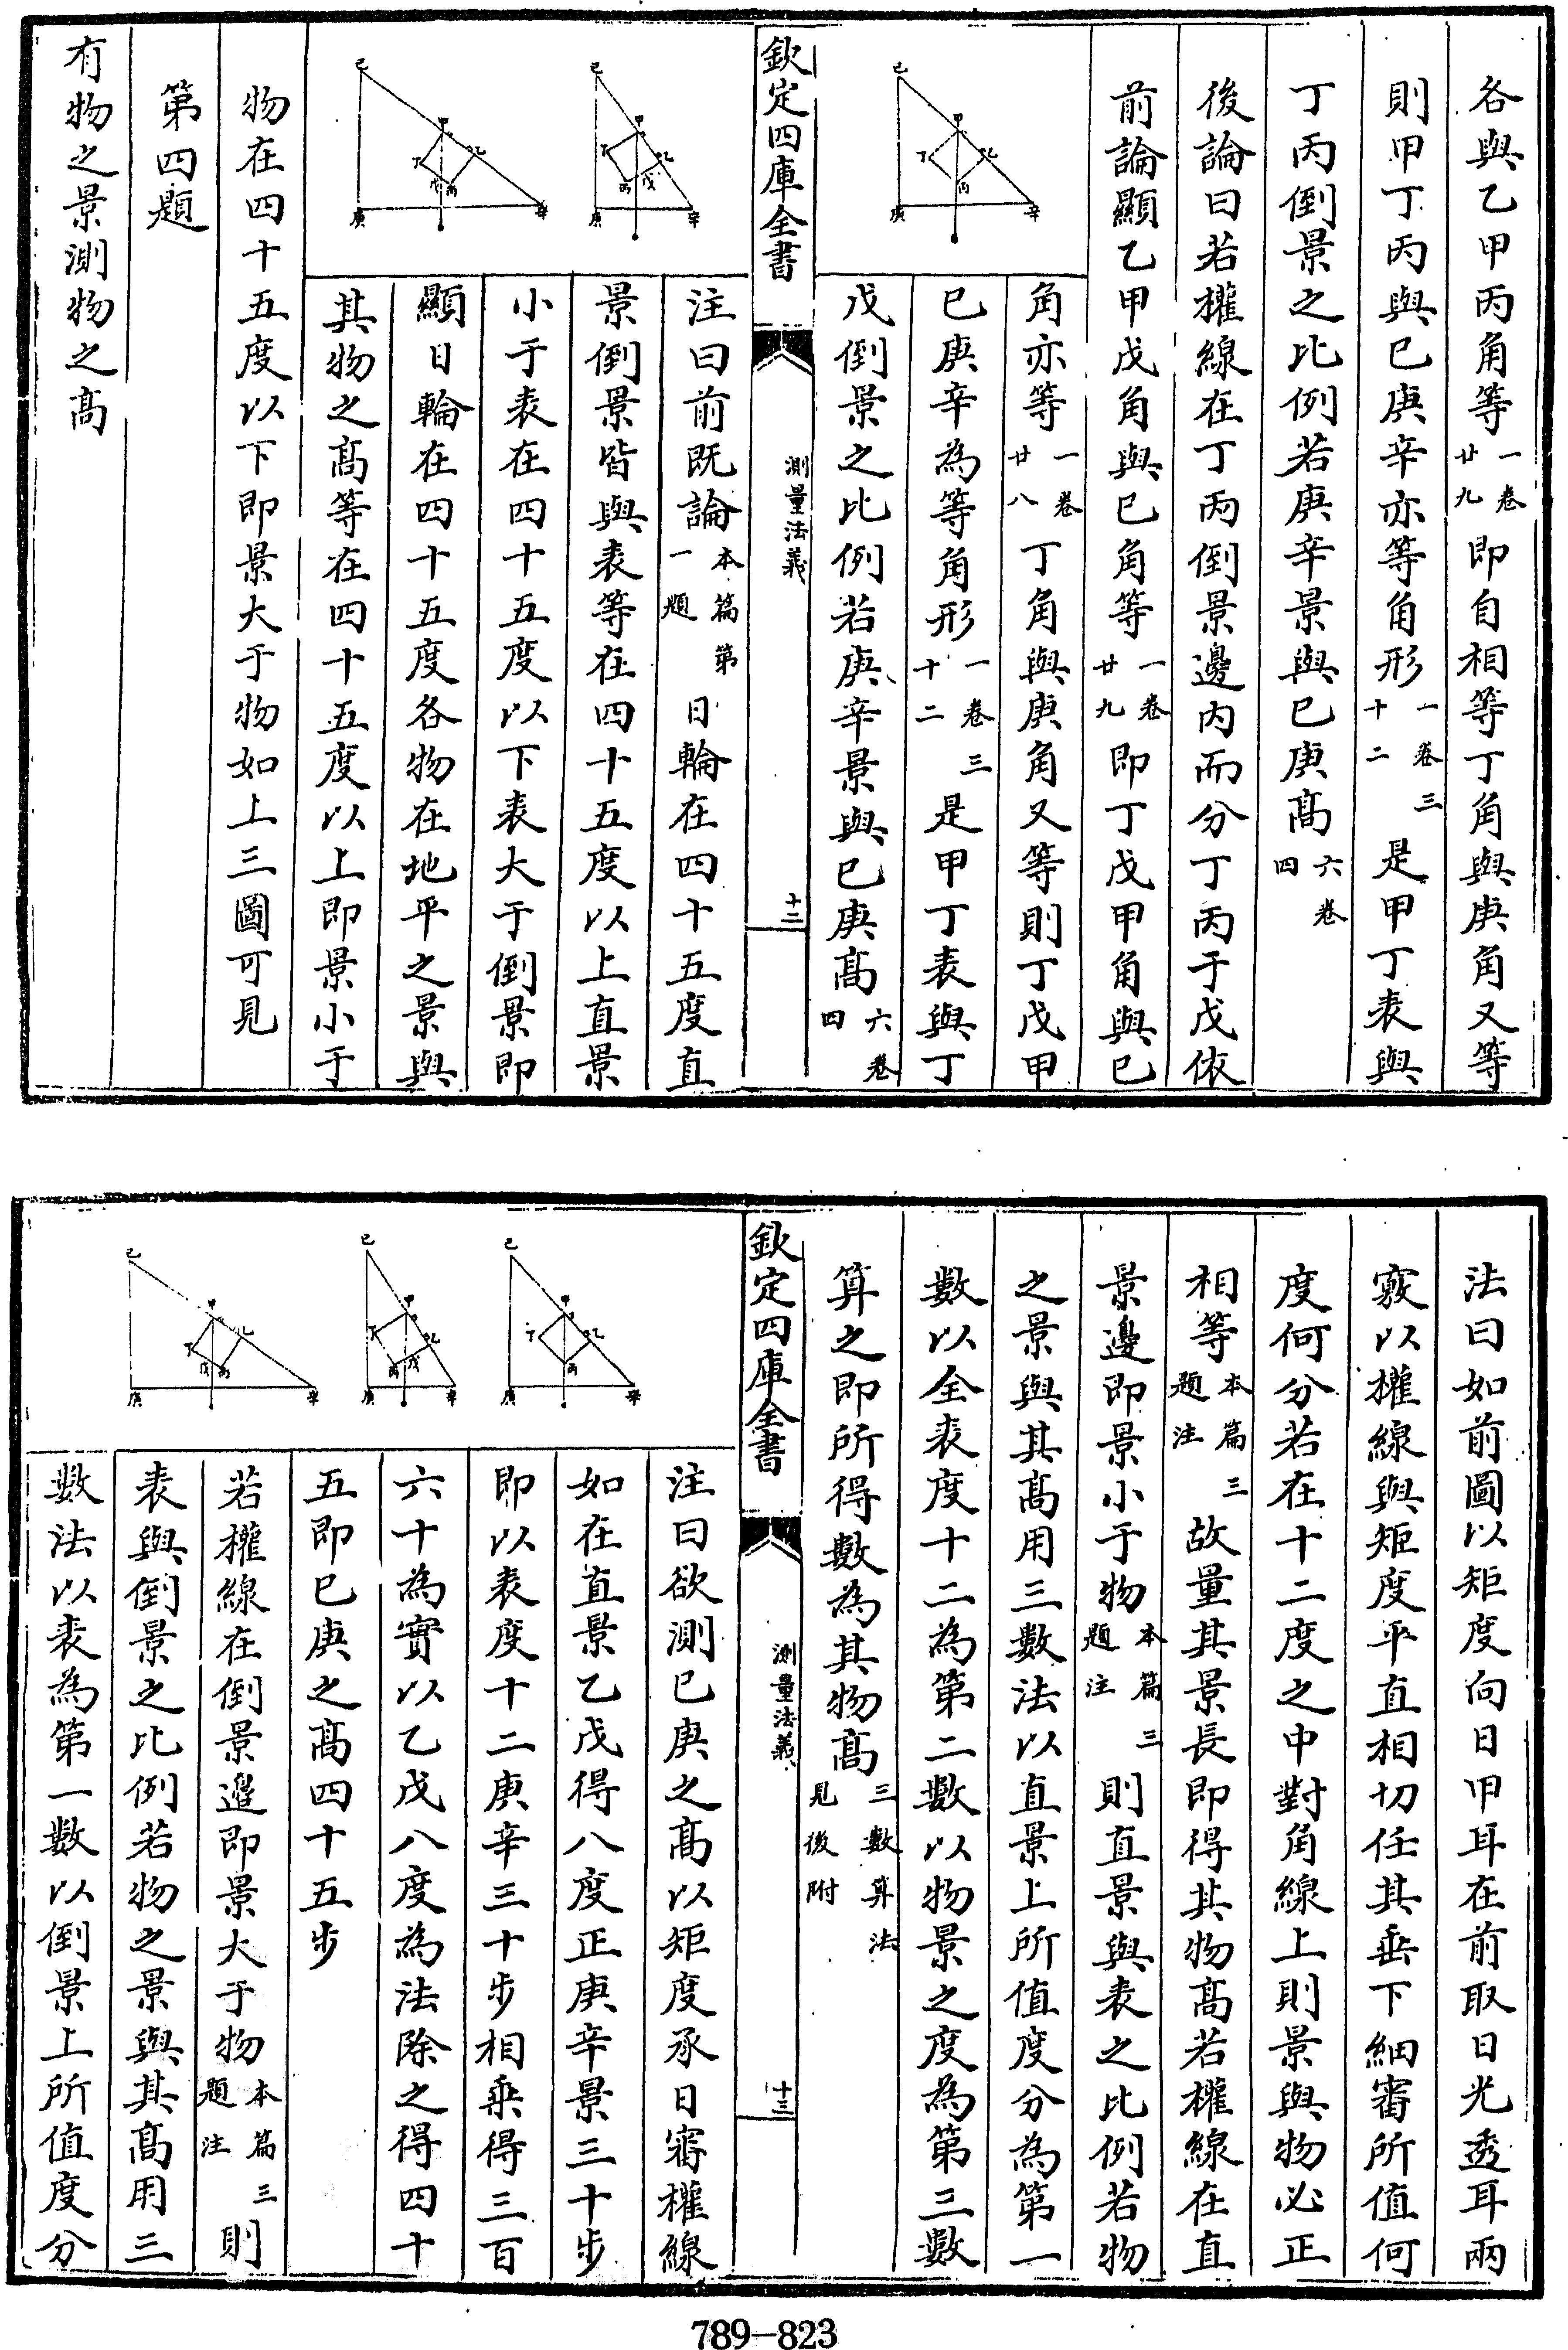 各與乙甲丙角等一卷廿九即自相等丁角與庚角又等
則甲丁丙與巳庚辛亦等角形一卷三十二是甲丁表與
丁丙倒景之比例若庚辛景與巳庚髙六卷四
後論曰若權線在丁丙倒景邊内而分丁丙于戊依
前論顯乙甲戊角與巳角等一卷廿九即丁戊甲角與巳
角亦等一卷廿八丁角與庚角又等則丁戊甲
巳庚辛為等角形一卷三十二是甲丁表與丁
戊倒景之比例若庚辛景與巳庚髙六卷四
己
甲
乙
丁
丙
庚
辛
欽定四庫全書
測量法義
十二
注曰前既論本篇第一題日輪在四十五度直
景倒景皆與表等在四十五度以上直景
小于表在四十五度以下表大于倒景即
顯日輪在四十五度各物在地平之景與
其物之髙等在四十五度以上即景小于
物在四十五度以下即景大于物如上三圖可見
己
甲
乙
丁
丙
戊
庚
辛
己
甲
乙
丁
戊
丙
庚
辛
第四題
有物之景測物之髙
法曰如前圖以矩度向日甲耳在前取日光透耳兩
竅以權線與矩度平直相切任其垂下細審所值何
度何分若在十二度之中對角線上則景與物必正
相等本篇三題注故量其景長即得其物髙若權線在直
景邊即景小于物本篇三題注則直景與表之比例若物
之景與其髙用三數法以直景上所值度分為第一
數以全表度十二為第二數以物景之度為第三數
算之即所得數為其物髙三數算法見後附
欽定四庫全書
測量法義
十三
注曰欲測巳庚之髙以矩度承日審權線
如在直景乙戊得八度正庚辛景三十步
即以表度十二庚辛三十步相乘得三百
六十為實以乙戊八度為法除之得四十
五即巳庚之髙四十五步
若權線在倒景邉即景大于物本篇三題注則
表與倒景之比例若物之景與其髙用三
數法以表為第一數以倒景上所值度分
己
甲
乙
丁
丙
庚
辛
己
甲
乙
丁
丙
戊
庚
辛
己
甲
乙
丁
戊
丙
庚
辛
789-823